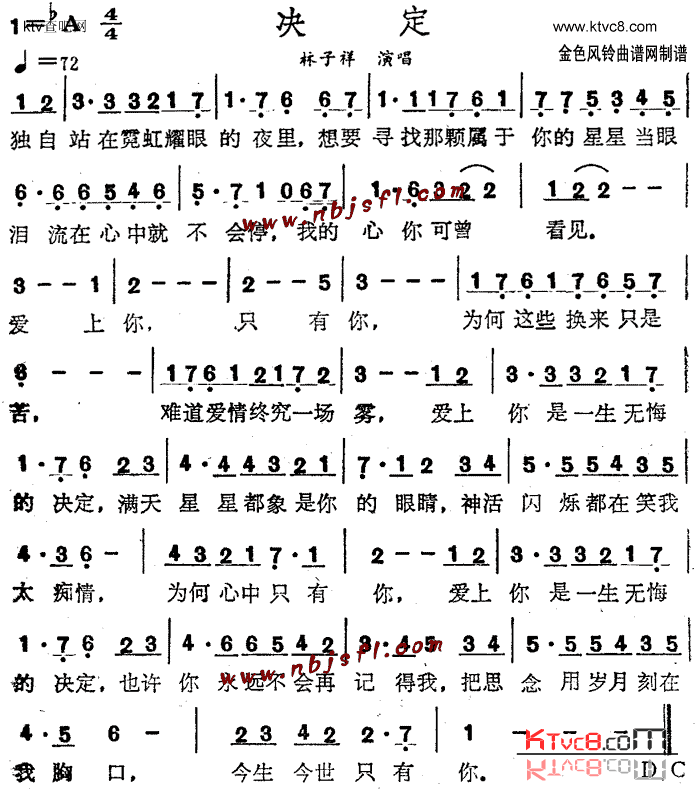 1=♭A 4/4 决 定 www.ktvc8.com
ktv查吧网
♩=72 林子祥 演唱 金色风铃曲谱网制谱
1 2 | 3·3 3 2 1 7 | 1·7 6 6 7 | 1·1 1 7 6 1 | 7 7 5 3 4 5 |
独自 站在霓虹耀眼 的 夜里,想要 寻找那颗属于 你的 星星 当眼
6·6 6 5 4 6 | 5·7 1 0 6 7 | 1·6 3 2 2 | 1 2 2 - - |
泪 流在心中就 不 会停,我的 心 你可曾 看见.
www.nbjsfl.com
3 - - 1 | 2 - - - | 2 - - 5 | 3 - - - | 1 7 6 1 7 6 5 7 |
爱 上 你, 只 有 你, 为何 这些 换来 只是
6 - - - | 1 7 6 1 2 1 7 2 | 3 - - 1 2 | 3·3 3 2 1 7 |
苦, 难道爱情终究一场 雾, 爱上 你 是一生无悔
1·7 6 2 3 | 4·4 4 3 2 1 | 7·1 2 3 4 | 5·5 5 4 3 5 |
的 决定,满天 星 星都象是你 的 眼睛,神活 闪 烁都在笑我
4·3 6 - | 4 3 2 1 7·1 | 2 - - 1 2 | 3·3 3 2 1 7 |
太 痴情, 为何心中只有 你, 爱上你 是一生无悔
1·7 6 2 3 | 4·6 6 5 4 2 | 3·4 5 3 4 | 5·5 5 4 3 5 |
的 决定,也许 你 永远不会再 记 得我,把思 念 用岁月刻在
www.nbjsfl.com
4·5 6 - | 2 3 4 2 2·7 | 1 - - - ‖
我 胸 口, 今生 今世 只有 你. D C
KTvc8.com